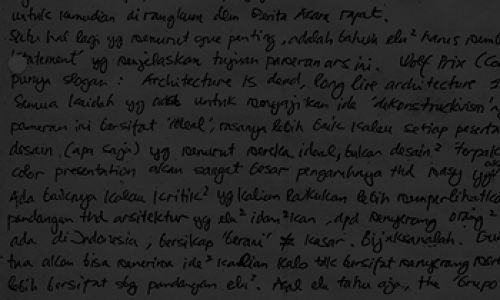 untuk kemudian dirangkum dlm Berita Acara rapat.
Satu hal lagi yg menurut gue penting, adalah bahwa elu² harus
"statement" yg menjelaskan tujuan pameran ars ini. Wolf Prix
punya slogan : Architecture is dead, long live architecture
Semua kaidah yg untuk menyajikan ide dekonstruktivism
pameran ini bersifat 'ideal', rasanya lebih baik kalau setiap peserta
desain (apa saja) yg menurut mereka ideal, bukan desain²
color presentation akan sangat besar pengaruhnya thd
Ada baiknya kalau kritik² yg kalian lakukan lebih memperlihatka
pandangan thd arsitektur yg elu² idam²kan, dpd menyerang orang²
ada di Indonesia, bersikap 'berani' ≠ kasar. Bijaksanalah.
tua akan bisa menerima ide² kalian kalo tdk bersifat menyerang
lebih bersifat sbg pandangan elu². Asal elu tahu aja, the "Grupo